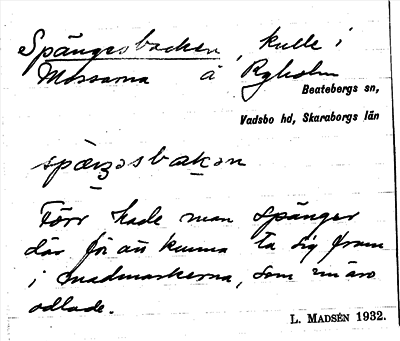 Spångesbacken, kulle i
Mossarna å Ryholm
Beatebergs sn,
Vadsbo hd, Skaraborgs län
Förr hade man spänger
där för att kunna ta sig fram
i madmarkerna, som nu äro
odlade.
L. MADSÉN 1932.